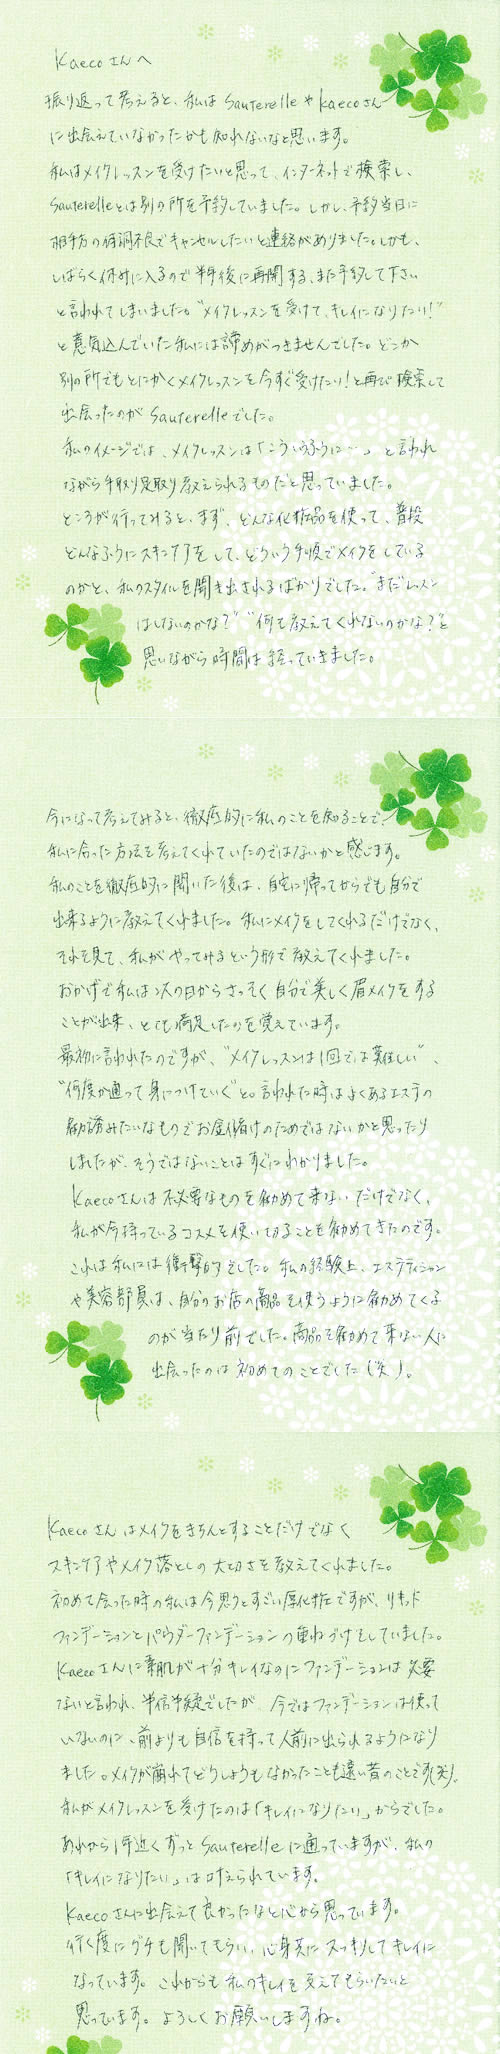 Kaecoさんへ
振り返って考えると、私は SauterelleやKaecoさん
に出会えていなかったかも知れないなと思います。
私はメイクレッスンを受けたいと思って、インターネットで検索し、
Sauterelleとは別の所を予約していました。しかし、予約当日に
相手方の体調不良でキャンセルしたいと連絡がありました。しかも、
しばらく休みに入るので半年後に再開する、また予約して下さい
と言われてしまいました。"メイクレッスンを受けて、キレイになりたい!"
と意気込んでいた私には諦めがつきませんでした。どこか
別の所でもとにかくメイクレッスンを今すぐ受けたい!と再び検索して
出会ったのが Sauterelleでした。
私のイメージでは、メイクレッスンは「こういうふうに…」と言われ
ながら手取り足取り教えられるものだと思っていました。
ところが行ってみると、まず、どんな化粧品を使って、普段
どんなふうにスキンケアをして、どういう手順でメイクをしている
のかと、私のスタイルを聞き出されるばかりでした。"まだレッスン
はしないのかな?""何も教えてくれないのかな?"と
思いながら時間は経っていきました。
今になって考えてみると、徹底的に私のことを知ることで、
私に合った方法を考えてくれていたのではないかと感じます。
私のことを徹底的に聞いた後は、自宅に帰ってからでも自分で
出来るように教えてくれました。私にメイクをしてくれるだけでなく、
それを見て、私がやってみるという形で教えてくれました。
おかげで私は次の日からさっそく自分で美しく眉メイクをする
ことが出来、とても満足したのを覚えています。
最初に言われたのですが、"メイクレッスンは1回では難しい"、
"何度か通って身につけていく"と。言われた時はよくあるエステの
勧誘みたいなものでお金儲けのためではないかと思ったり
しましたが、そうではないことはすぐにわかりました。
Kaecoさんは不必要なものを勧めて来ないだけでなく、
私が今持っているコスメを使い切ることを勧めてきたのです。
これは私には衝撃的でした。私の経験上、エステティシャン
や美容部員は、自分のお店の商品を使うように勧めてくる
のが当たり前でした。商品を勧めて来ない人に
出会ったのは初めてのことでした(笑)。
Kaecoさんはメイクをきちんとすることだけでなく
スキンケアやメイク落としの大切さを教えてくれました。
初めて会った時の私は今思うとすごい厚化粧ですが、リキッド
ファンデーションとパウダーファンデーションの重ねづけをしていました。
Kaecoさんに素肌が十分キレイなのにファンデーションは必要
ないと言われ、半信半疑でしたが、今ではファンデーションは使って
いないのに、前よりも自信を持って人前に出られるようになり
ました。メイクが崩れてどうしようもなかったことも遠い昔のことです(笑)。
私がメイクレッスンを受けたのは「キレイになりたい」からでした。
あれから1年近くずっとSauterelleに通っていますが、私の
「キレイになりたい」は叶えられています。
Kaecoさんに出会えて良かったなと心から思っています。
行く度にグチも聞いてもらい、心身共にスッキリしてキレイに
なっています。これからも私のキレイを支えてもらいたいと
思っています。よろしくお願いしますね。